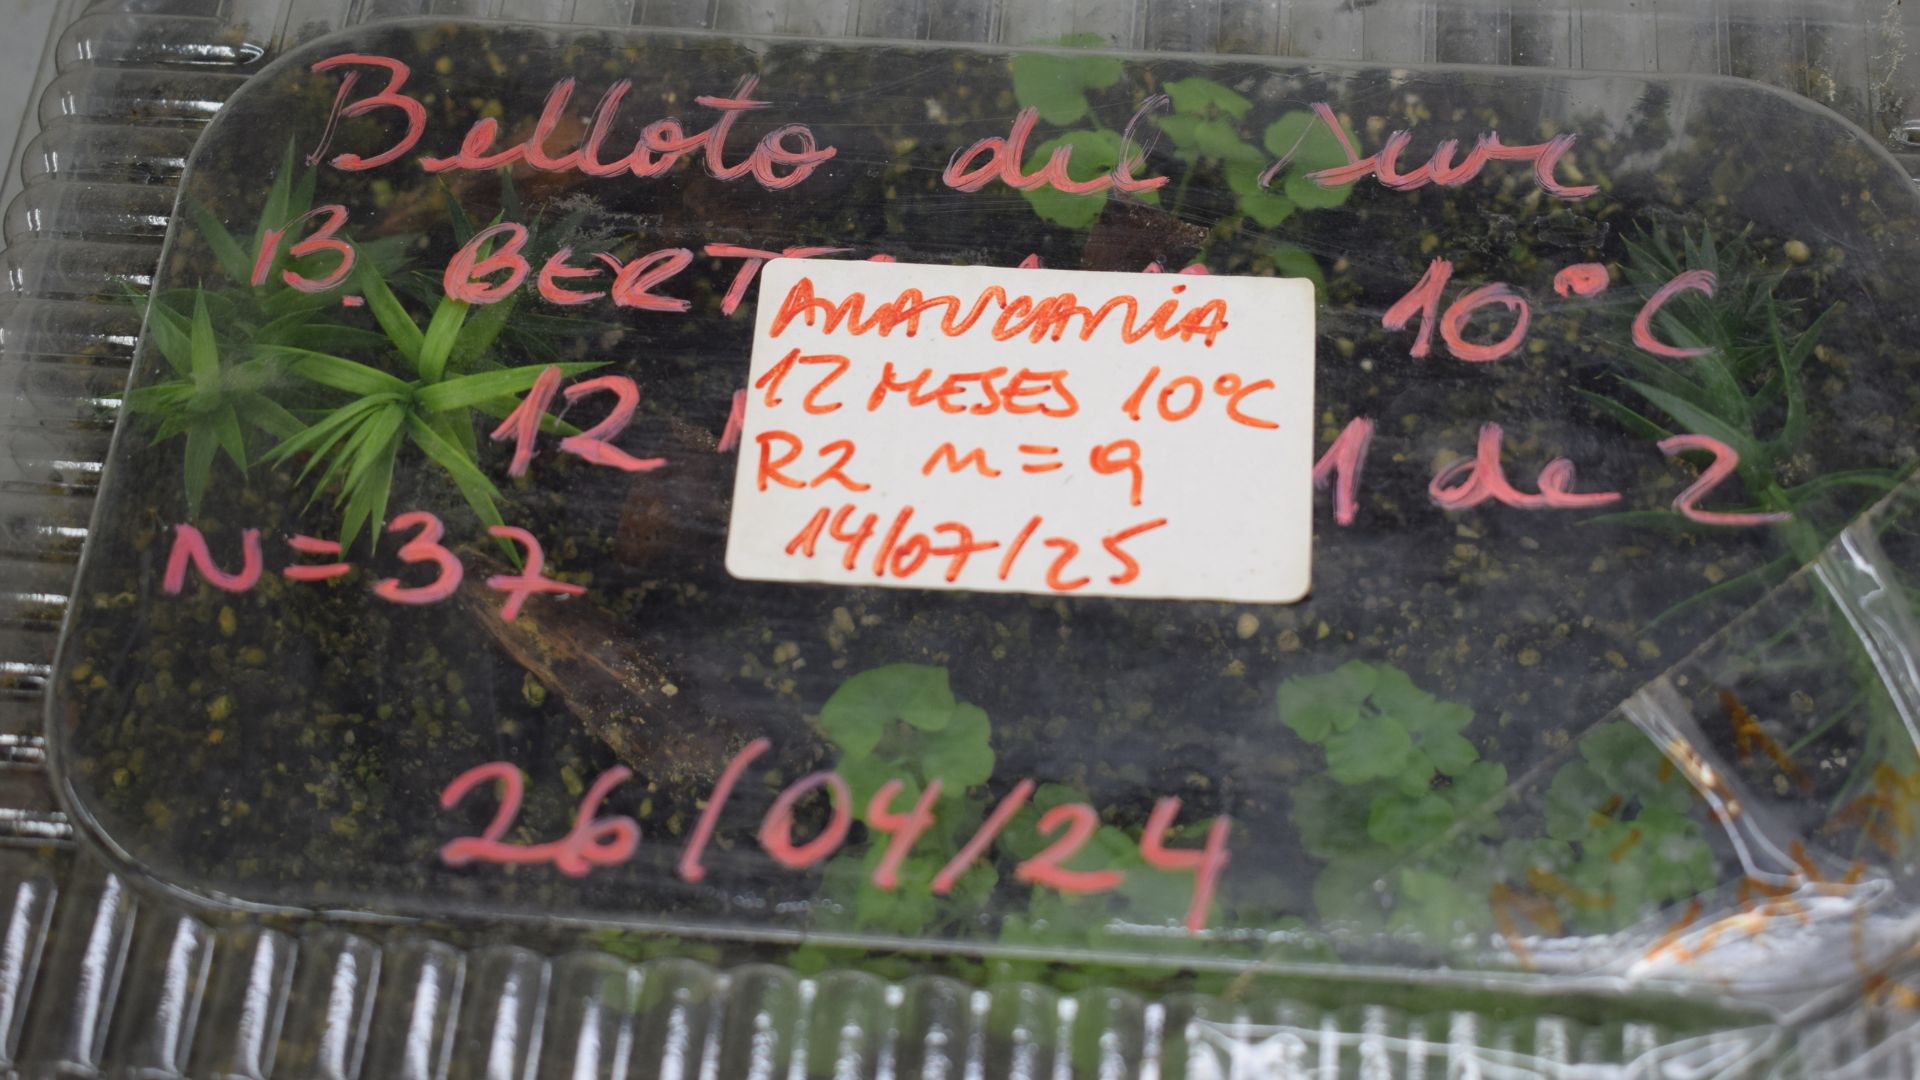 Belloto del Sur
B. BERT 10°C
12 1 de 2
ARAUCARIA
12 MESES 10°C
R2 n=9
14/07/25
N=37
26/04/24